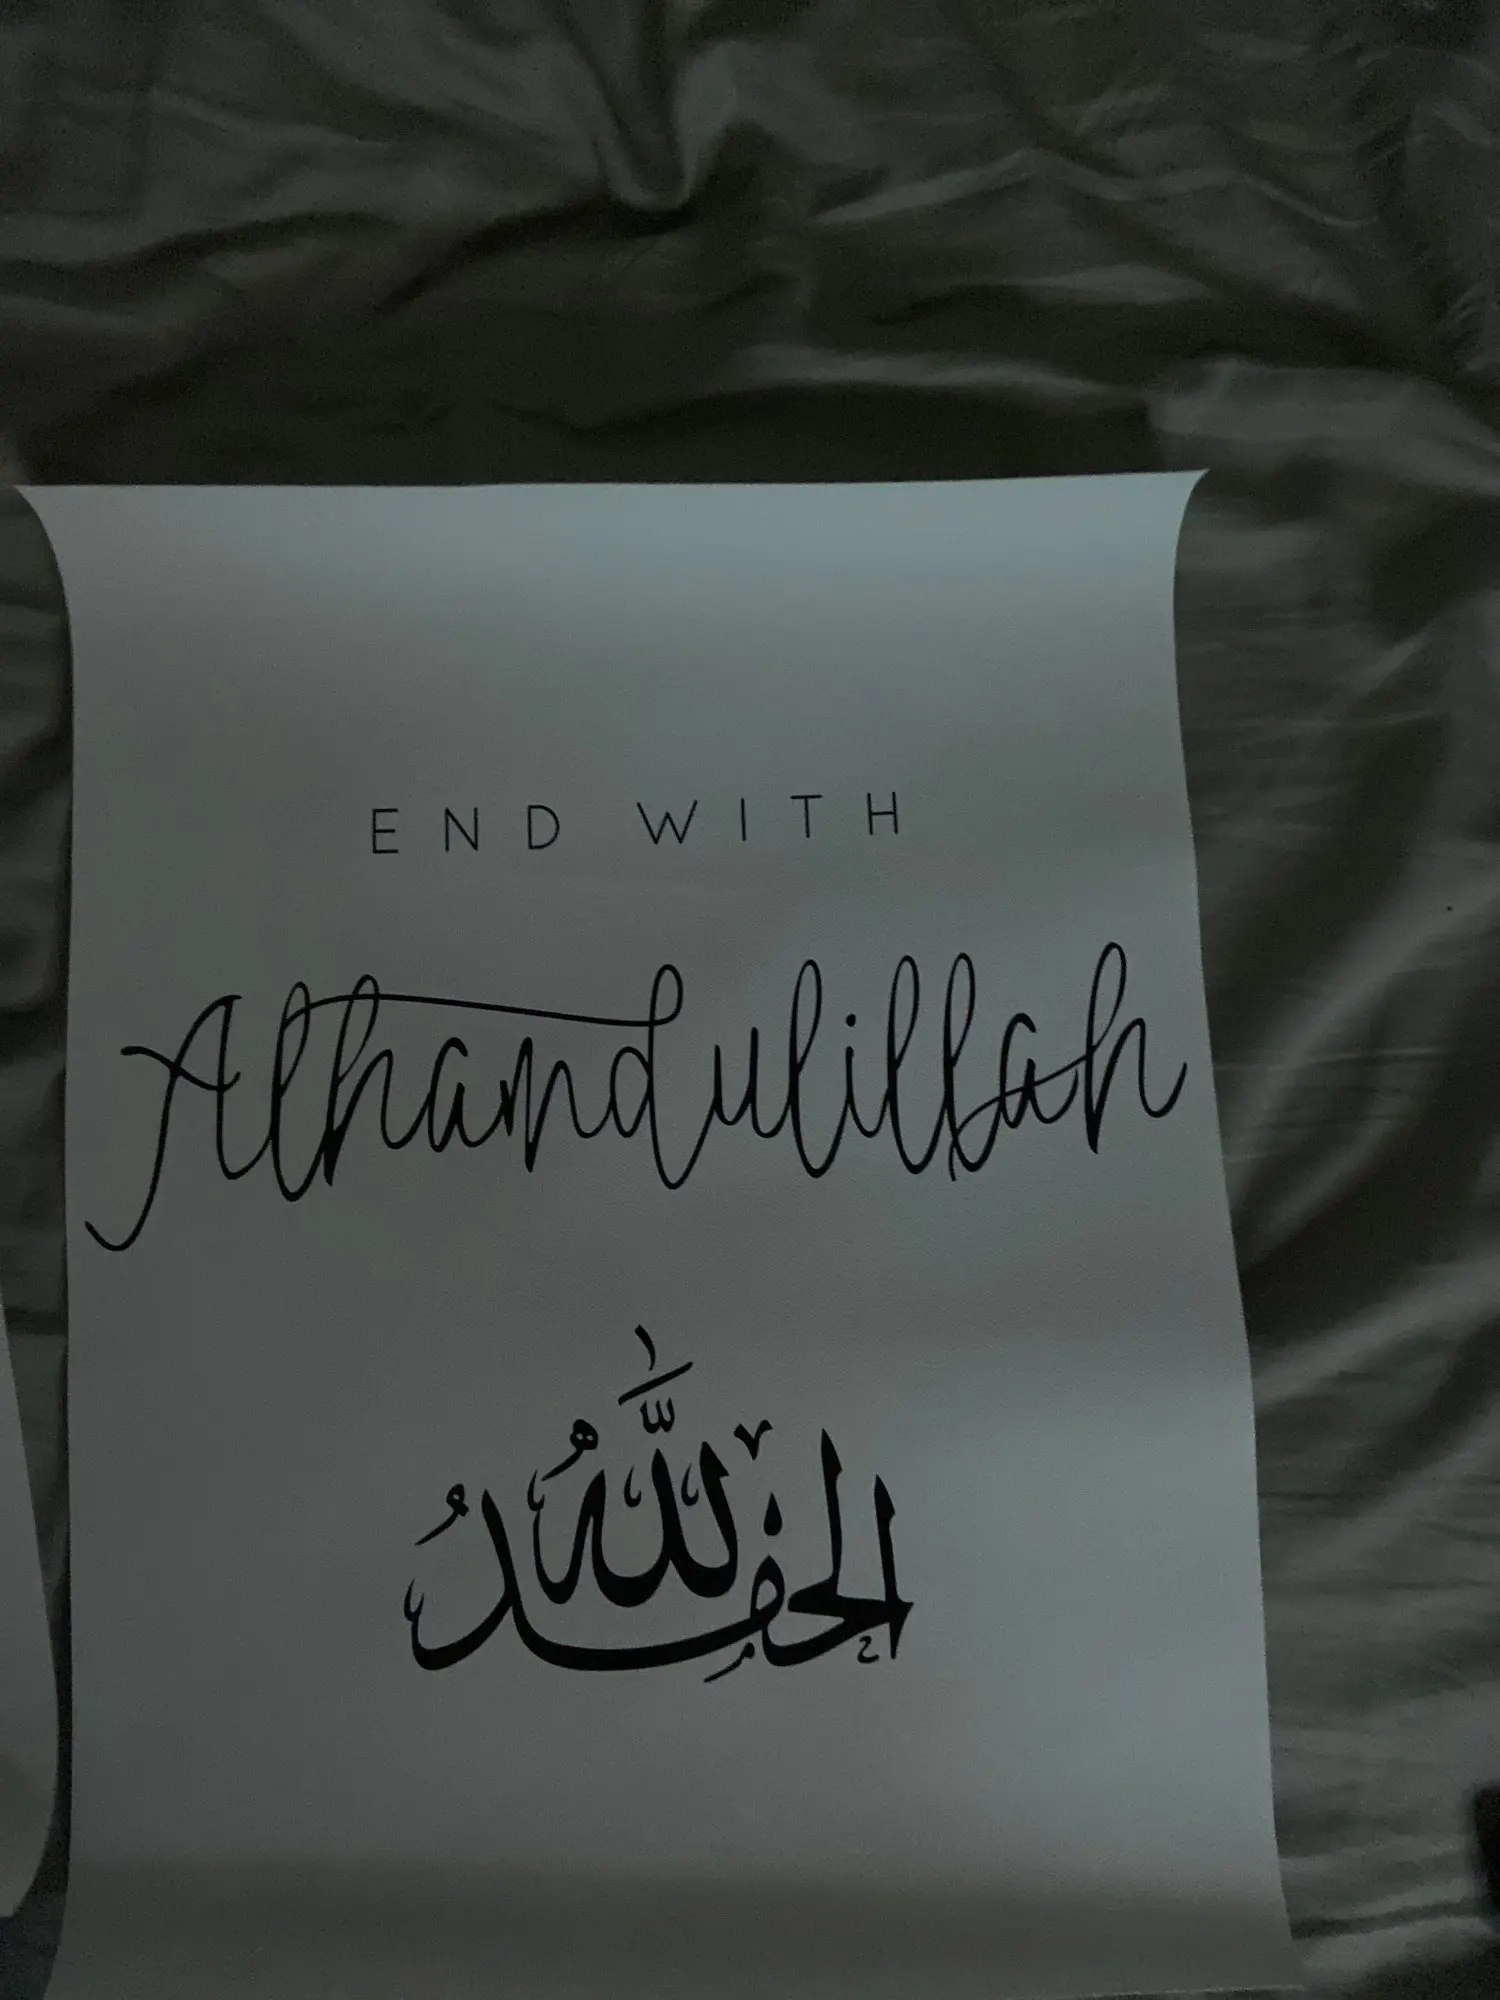 END WITH
Alhamdulillah
الحمدُ للّٰهُ